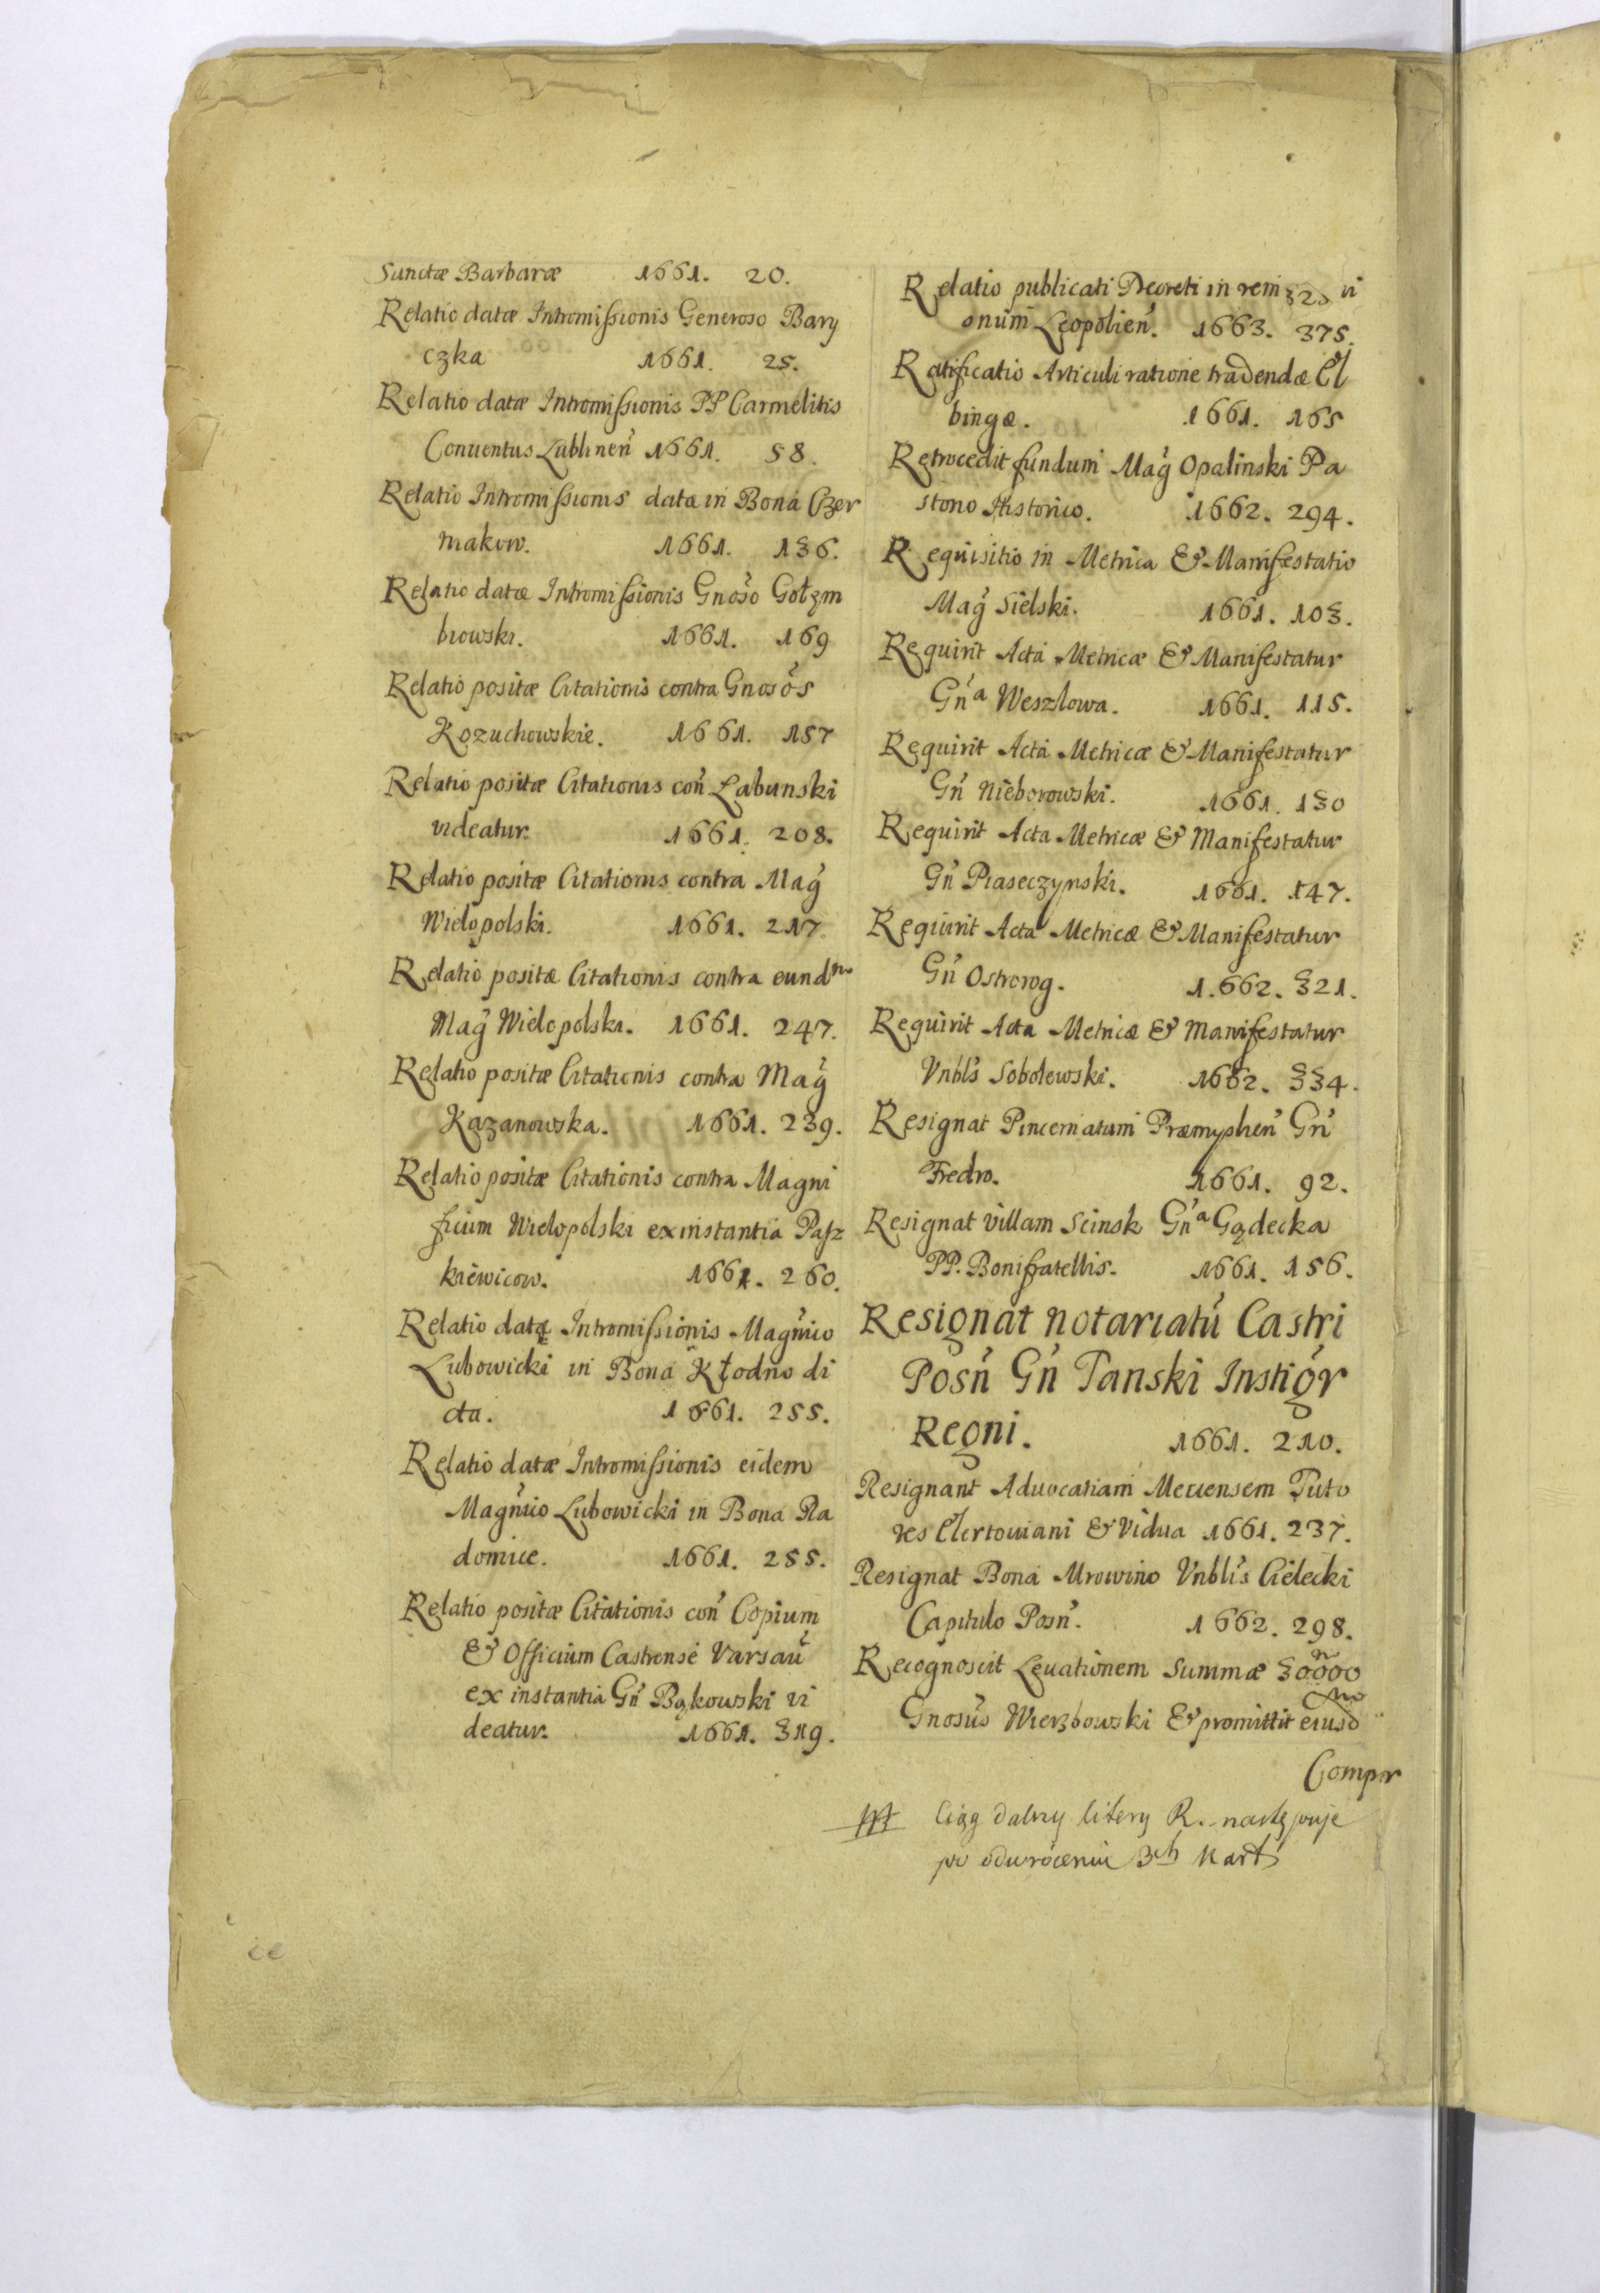 Sanctæ Barbaræ 1661. 20.
Relatio datæ Intromissionis Generoso Bary
czka 1661. 25.
Relatio datæ Intromissionis PP Carmelitis
Conuentus Lublinen 1661. 58.
Relatio Intromissionis data in Bona Czer
makow. 1661. 136.
Relatio datæ Intromissionis Gnoso Gołęm
biowski. 1661. 169
Relatio positæ Citationis contra Gnosos
Kozuchowskie. 1661. 157
Relatio positæ Citationis con Łabunski
videatur. 1661. 208.
Relatio positæ Citationis contra Mag
Wielopolski. 1661. 217.
Relatio positæ Citationis contra eundm
Mag Wielopolski. 1661. 247.
Relatio positæ Citationis contra Mag
Kazanowska. 1661. 239.
Relatio positæ Citationis contra Magni
ficum Wielopolski ex instantia Pasz
kiewicow. 1661. 260.
Relatio datæ Intromissionis Magnico
Lubowicki in Bona Kłodno di
cta. 1661. 255.
Relatio datæ Intromissionis eidem
Magnico Lubowicki in Bona Ra
domice. 1661. 255.
Relatio positæ Citationis con Copium
& Officium Castrense Varsau
ex instantia Gn Bąkowski vi
deatur. 1661. 319.
Relatio publicati Decreti in rem
onum Leopolien. 1663. 375.
Ratificatio Articuli ratione tradendæ El
bingæ. 1661. 165
Retrocedit fundum Mag Opalinski Pa
storio Historico. 1662. 294.
Requisitio in Metrica & Manifestatio
Mag Sielski. 1661. 103.
Requirit Acta Metricæ & Manifestatur
Gna Weszlowa. 1661. 115.
Requirit Acta Metricæ & Manifestatur
Gn Nieborowski. 1661. 130
Requirit Acta Metricæ & Manifestatur
Gn Piaseczynski. 1661. 147.
Requirit Acta Metricæ & Manifestatur
Gn Ostrorog. 1.662. 321.
Requirit Acta Metricæ & Manifestatur
Vnbls Sobolewski. 1662. 334.
Resignat Pincernatum Præmyslien Gn
Fredro. 1661. 92.
Resignat villam Scinsk Gna Gądecka
PP. Bonifratellis. 1661. 156.
Resignat notariatu Castri
Posn Gn Tanski Instigr
Regni. 1661. 210.
Resignant Aduocatiam Meuensem Tuto
res Elertouiani & Vidua 1661. 237.
Resignat Bona Mrowino Vnblis Cielecki
Capitulo Posn. 1662. 298.
Recognoscit Leuationem Summæ 30000
Gnosus Wierzbowski & promittit eiusd
Compor
Ciąg dalszy litery R. następuje
po odwróceniu 3ch kart